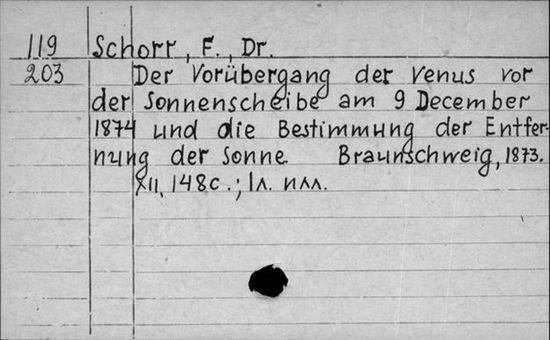 119 Schorr, F., Dr.
203 Der Vorübergang der Venus vor
der Sonnenscheibe am 9 December
1874 und die Bestimmung der Entfer-
nung der Sonne. Braunschweig, 1873.
XII, 148с.; 1л. илл.